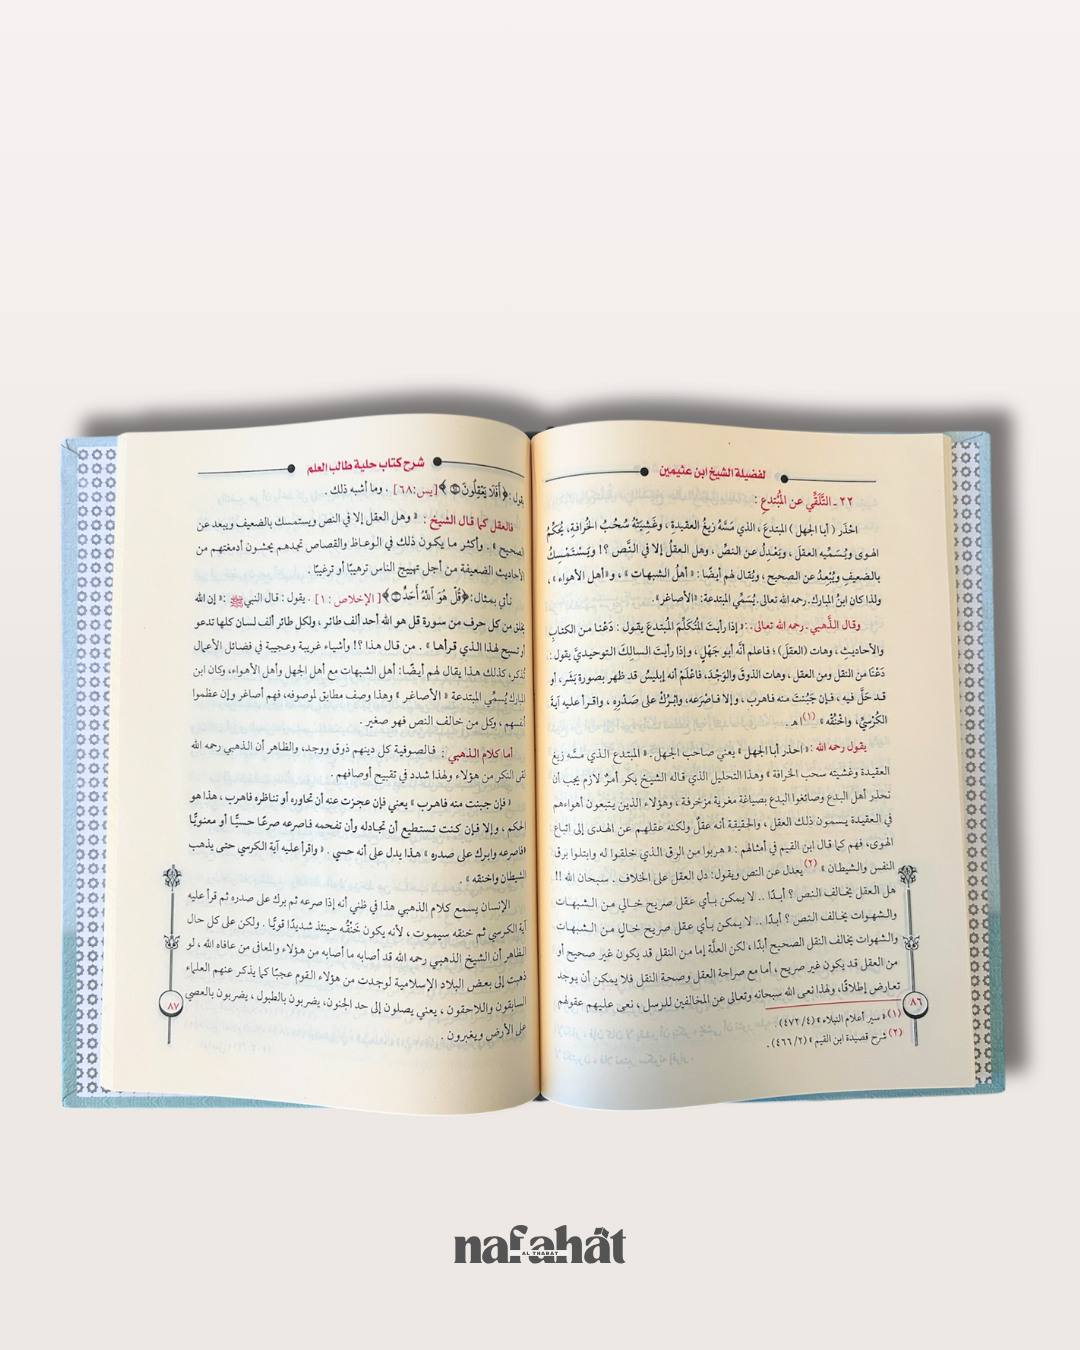 لفضيلة الشيخ ابن عثيمين
٢٢ ـ التَّلَقِّي عن المُبْتدعِ :
احْذَر ( أبا الجهل ) المبتدعَ ، الذي مَسَّهُ زيغُ العقيدة ، وغَشِيَتْهُ سُحُبُ الخُرافةِ، يُحَكِّمُ
الهوى ويُسَمِّيه العقلَ ، ويَعْدِلُ عن النصِّ ، وهل العقلُ إلا في النَّص ؟! ويَسْتَمْسِكُ
بالضعيفِ ويُبْعِدُ عن الصحيح ، ويُقال لهم أيضًا : « أهلُ الشبهات » ، و« أهل الأهواء » ،
ولذا كان ابنُ المبارك ـ رحمه الله تعالى ـ يُسَمِّي المبتدعة : «الأصاغر».
وقال الذَّهبي ـ رحمه الله تعالى ـ : « إذا رأيتَ المُتَكَلِّمَ المُبتدعَ يقول : دَعْنا من الكتابِ
والأحاديثِ ، وهات (العقلَ) ؛ فاعلم أنَّه أبو جَهْلٍ ، وإذا رأيتَ السالِكَ التوحيديَّ يقول :
دَعْنَا من النقل ومن العقل ، وهات الذوقَ والوَجْدَ، فاعْلَمْ أنه إبليسُ قد ظهر بصورة بَشَر ، أو
قد حَلَّ فيه ، فإن جَبُنتَ منه فاهرب ، وإلا فاصْرَعه، وابْرُكْ على صَدْرِه ، واقرأ عليه آيةَ
الكُرْسِيِّ، واخْنُقْه » (١) اهـ .
يقول رحمه الله : « احذر أبا الجهل » يعني صاحب الجهل . « المبتدع الذي مسَّه زيغ
العقيدة وغشيته سحب الخرافة » وهذا التحليل الذي قاله الشيخ بكر أمرٌ لازم يجب أن
نحذر أهل البدع وصائغوا البدع بصياغة مغرية مزخرفة ، وهؤلاء الذين يتبعون أهواءهم
في العقيدة يسمون ذلك العقل ، والحقيقة أنه عقلٌ ولكنه عقلهم عن الهدى إلى اتباع
الهوى، فهم كما قال ابن القيم في أمثالهم : « هربوا من الرق الذي خلقوا له وابتلوا برق
النفس والشيطان » (٢) يعدل عن النص ويقول: دل العقل على الخلاف . سبحان الله !!
هل العقل يخالف النص ؟ أبدًا .. لا يمكن بأي عقل صريح خالي من الشبهات
والشهوات يخالف النص ؟ أبدًا .. لا يمكن بأي عقل صريح خالٍ من الشبهات
والشهوات يخالف النقل الصحيح أبدًا ، لكن العلَّة إما من النقل قد يكون غير صحيح أو
من العقل قد يكون غير صريح ، أما مع صراحة العقل وصحة النقل فلا يمكن أن يوجد
تعارض إطلاقًا، ولهذا نعى الله سبحانه وتعالى عن المخالفين للرسل ، نعى عليهم عقولهم
(١) « سير أعلام النبلاء » (٤/ ٤٧٢) .
(٢) شرح قصيدة ابن القيم » (٢/ ٤٦٦) .
٨٦
شرح كتاب حلية طالب العلم
يقول : ﴿ أَفَلَا يَعْقِلُونَ ۝ ﴾ [يس:٦٨] ، وما أشبه ذلك .
فالعقل كما قال الشيخ : « وهل العقل إلا في النص ويستمسك بالضعيف ويبعد عن
الصحيح » . وأكثر ما يكون ذلك في الوعاظ والقصاص تجدهم يحشون أدمغتهم من
الأحاديث الضعيفة من أجل تهييج الناس ترهيبًا أو ترغيبًا .
نأتي بمثال: ﴿ قُلْ هُوَ ٱللَّهُ أَحَدٌ ۝ ﴾ [ الإخلاص : ١ ] . يقول : قال النبي ﷺ : « إن الله
يخلق من كل حرف من سورة قل هو الله أحد ألف طائر ، ولكل طائر ألف لسان كلها تدعو
أو تسبح لهذا الذي قرأها » . من قال هذا ؟! وأشياء غريبة وعجيبة في فضائل الأعمال
تُذكر، كذلك هذا يقال لهم أيضًا: أهل الشبهات مع أهل الجهل وأهل الأهواء، وكان ابن
المبارك يُسمِّي المبتدعة « الأصاغر » وهذا وصف مطابق لموصوفه، فهم أصاغر وإن عظموا
أنفسهم ، وكل من خالف النص فهو صغير .
أما كلام الذهبي : فالصوفية كل دينهم ذوق ووجد، والظاهر أن الذهبي رحمه الله
لقى النكر من هؤلاء ولهذا شدد في تقبيح أوصافهم .
« فإن جبنت منه فاهرب » يعني فإن عجزت عنه أن تحاوره أو تناظره فاهرب ، هذا هو
الحكم ، وإلا فإن كنت تستطيع أن تجادله وأن تفحمه فاصرعه صرعًا حسيًّا أو معنويًّا
«فاصرعه وابرك على صدره » هذا يدل على أنه حسي . « واقرأ عليه آية الكرسي حتى يذهب
الشيطان واخنقه » .
الإنسان يسمع كلام الذهبي هذا في ظني أنه إذا صرعه ثم برك على صدره ثم قرأ عليه
آية الكرسي ثم خنقه سيموت ، لأنه يكون خَنْقُه حينئذ شديدًا قويًّا . ولكن على كل حال
الظاهر أن الشيخ الذهبي رحمه الله قد أصابه ما أصابه من هؤلاء والمعافى من عافاه الله ، لو
ذهبت إلى بعض البلاد الإسلامية لوجدت من هؤلاء القوم عجبًا كما يذكر عنهم العلماء
السابقون واللاحقون ، يعني يصلون إلى حد الجنون، يضربون بالطبول ، يضربون بالعصي
على الأرض ويغبرون .
٨٧
nafahât
AL THABAT